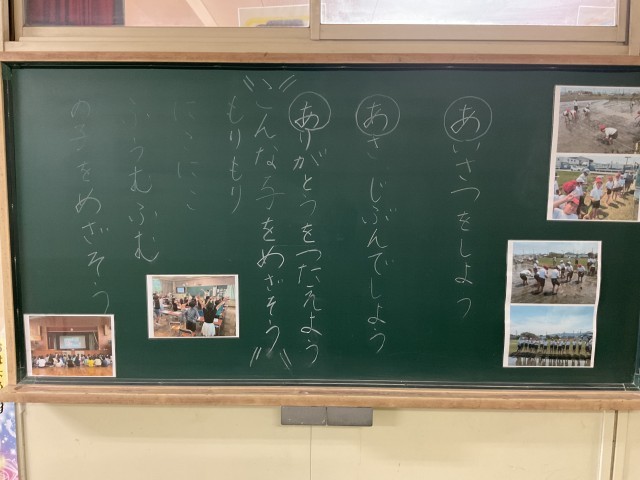 あいさつをしよう
あさ じぶんでしよう
ありがとうをつたえよう
"こんな子をめざそう"
もりもり
にこにこ
うぅむふむ
の子をめざそう